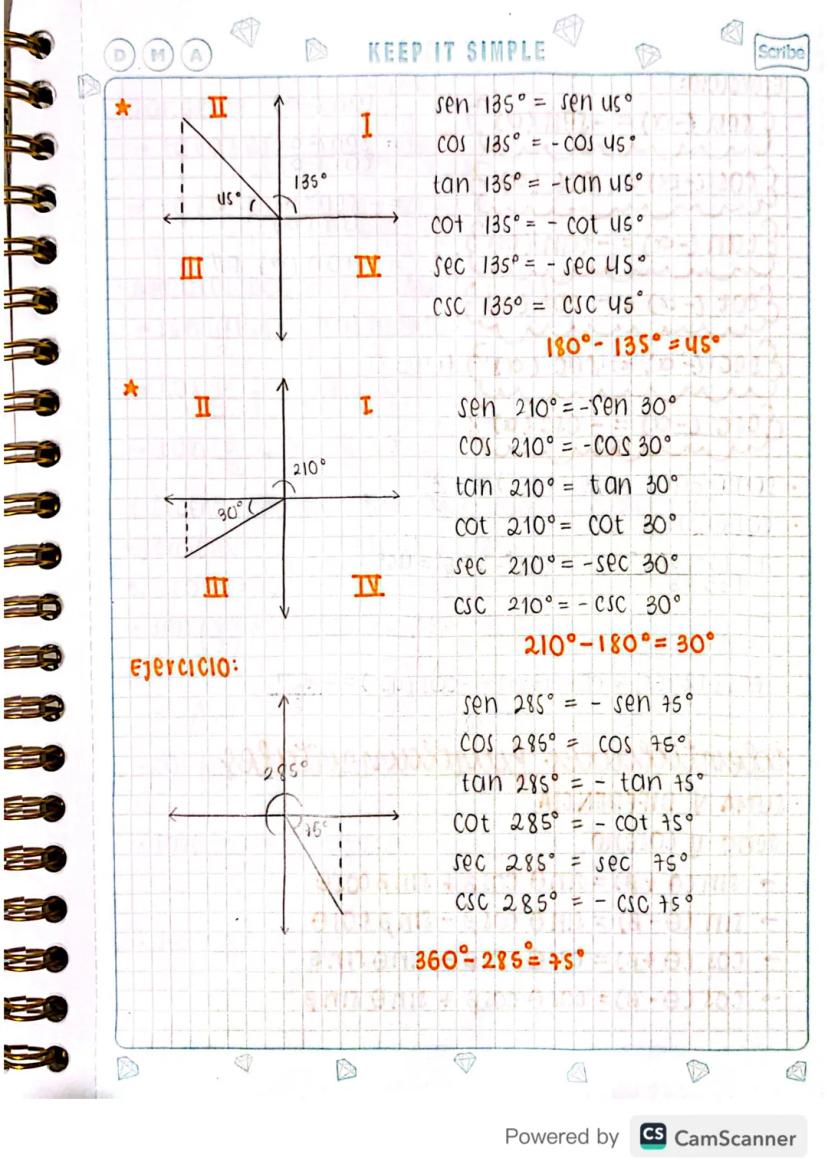 D M A
KEEP IT SIMPLE
Scribe
II
I
135°
45°
III
IV
sen 135° = sen 45°
cos 135° = -cos 45°
tan 135° = -tan 45°
cot 135° = - cot 45°
sec 135° = - sec 45°
csc 135° = csc 45°
180° - 135° = 45°
II
I
210°
30°
III
IV
sen 210° = -sen 30°
cos 210° = -cos 30°
tan 210° = tan 30°
cot 210° = cot 30°
sec 210° = -sec 30°
csc 210° = - csc 30°
210° - 180° = 30°
Ejercicio:
285°
75°
sen 285° = - sen 75°
cos 285° = cos 75°
tan 285° = - tan 75°
cot 285° = - cot 75°
sec 285° = sec 75°
csc 285° = - csc 75°
360° - 285° = 75°
Powered by CS CamScanner